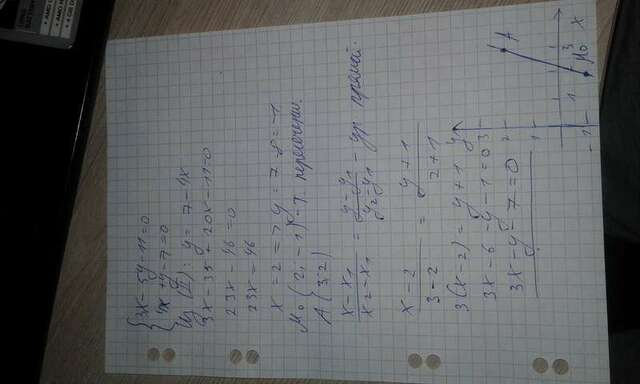 LONG
BATTERY
• AMD
• AMD
• 4 GB
{3x - 5y - 11 = 0
{4x + y - 7 = 0
Из (II): y = 7 - 4x
3x - 35 + 20x - 11 = 0
23x - 46 = 0
23x = 46
x = 2 => y = 7 - 8 = -1
M₀ (2, -1) - т. пересечения.
A (3; 2)
x - x₁ / x₂ - x₁ = y - y₁ / y₂ - y₁ - ур прямой.
x - 2 / 3 - 2 = y + 1 / 2 + 1
3(x - 2) = y + 1
3x - 6 - y - 1 = 0
3x - y - 7 = 0
y
3
2
A
1
1
3
x
-1
M₀